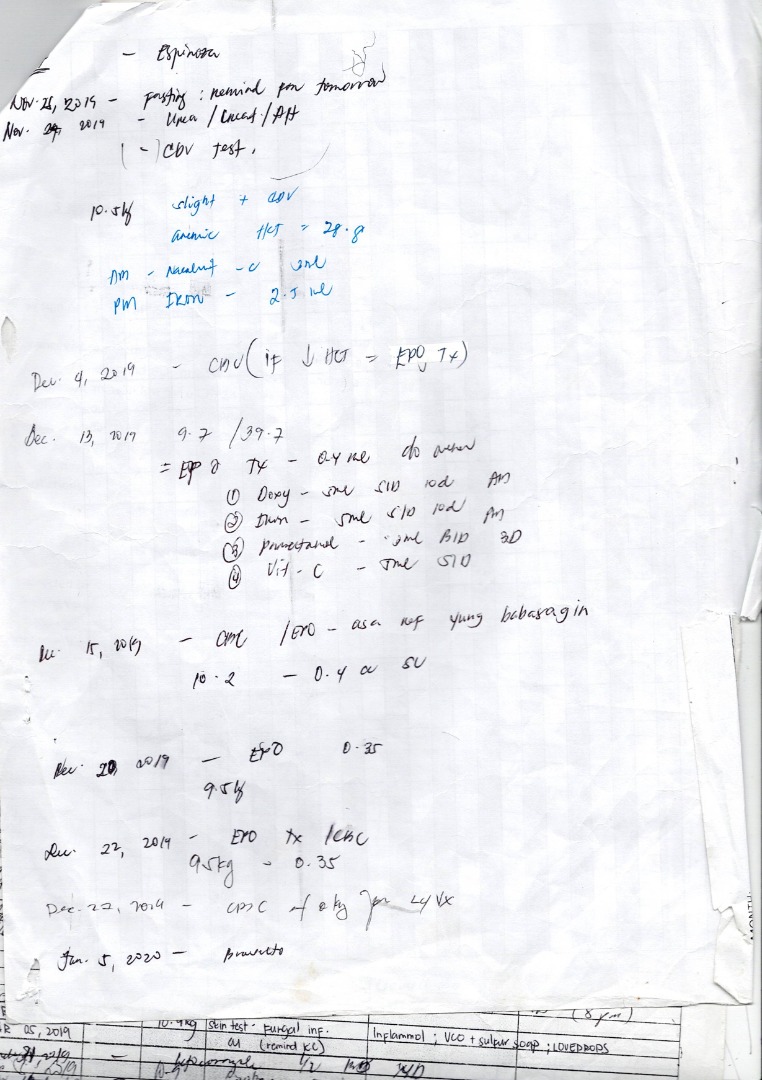 - Espinosa
Nov. 28, 2019 - fasting : remind for tomorrow
Nov. 29, 2019 - Urea / Creat. /
(-) CDV test.
10.5kg slight + CDV
anemic HCT = 28.8
AM - - C 3ml
PM Iron - 2.5 ml
Dec. 4, 2019 - CBC (if ↓ HCT = EPO Tx)
Dec. 13, 2019 9.7 / 39.7
= EPO Tx - 0.4 ml c/o owner
① Doxy - 5ml SID 10d AM
② Iron - 5ml SID 10d PM
③ - 3ml BID 3D
④ Vit - C - 5ml SID
Dec. 15, 2019 - CBC / EPO - asa ref yung babasagin
10.2 - 0.4 cc SC
Dec. 20, 2019 - EPO 0.35
9.5kg
Dec. 22, 2019 - EPO Tx / CBC
9.5kg - 0.35
Dec. 22, 2019 - CBC for 4 Vx
Jan. 5, 2020 - Bravecto
(8 ym)
R 05, 2019 10.4kg Skin test - Fungal inf. Inflammol ; VCO + sulfur soap ; LOVEDROPS
(remind KC)
1/2
MONTH: